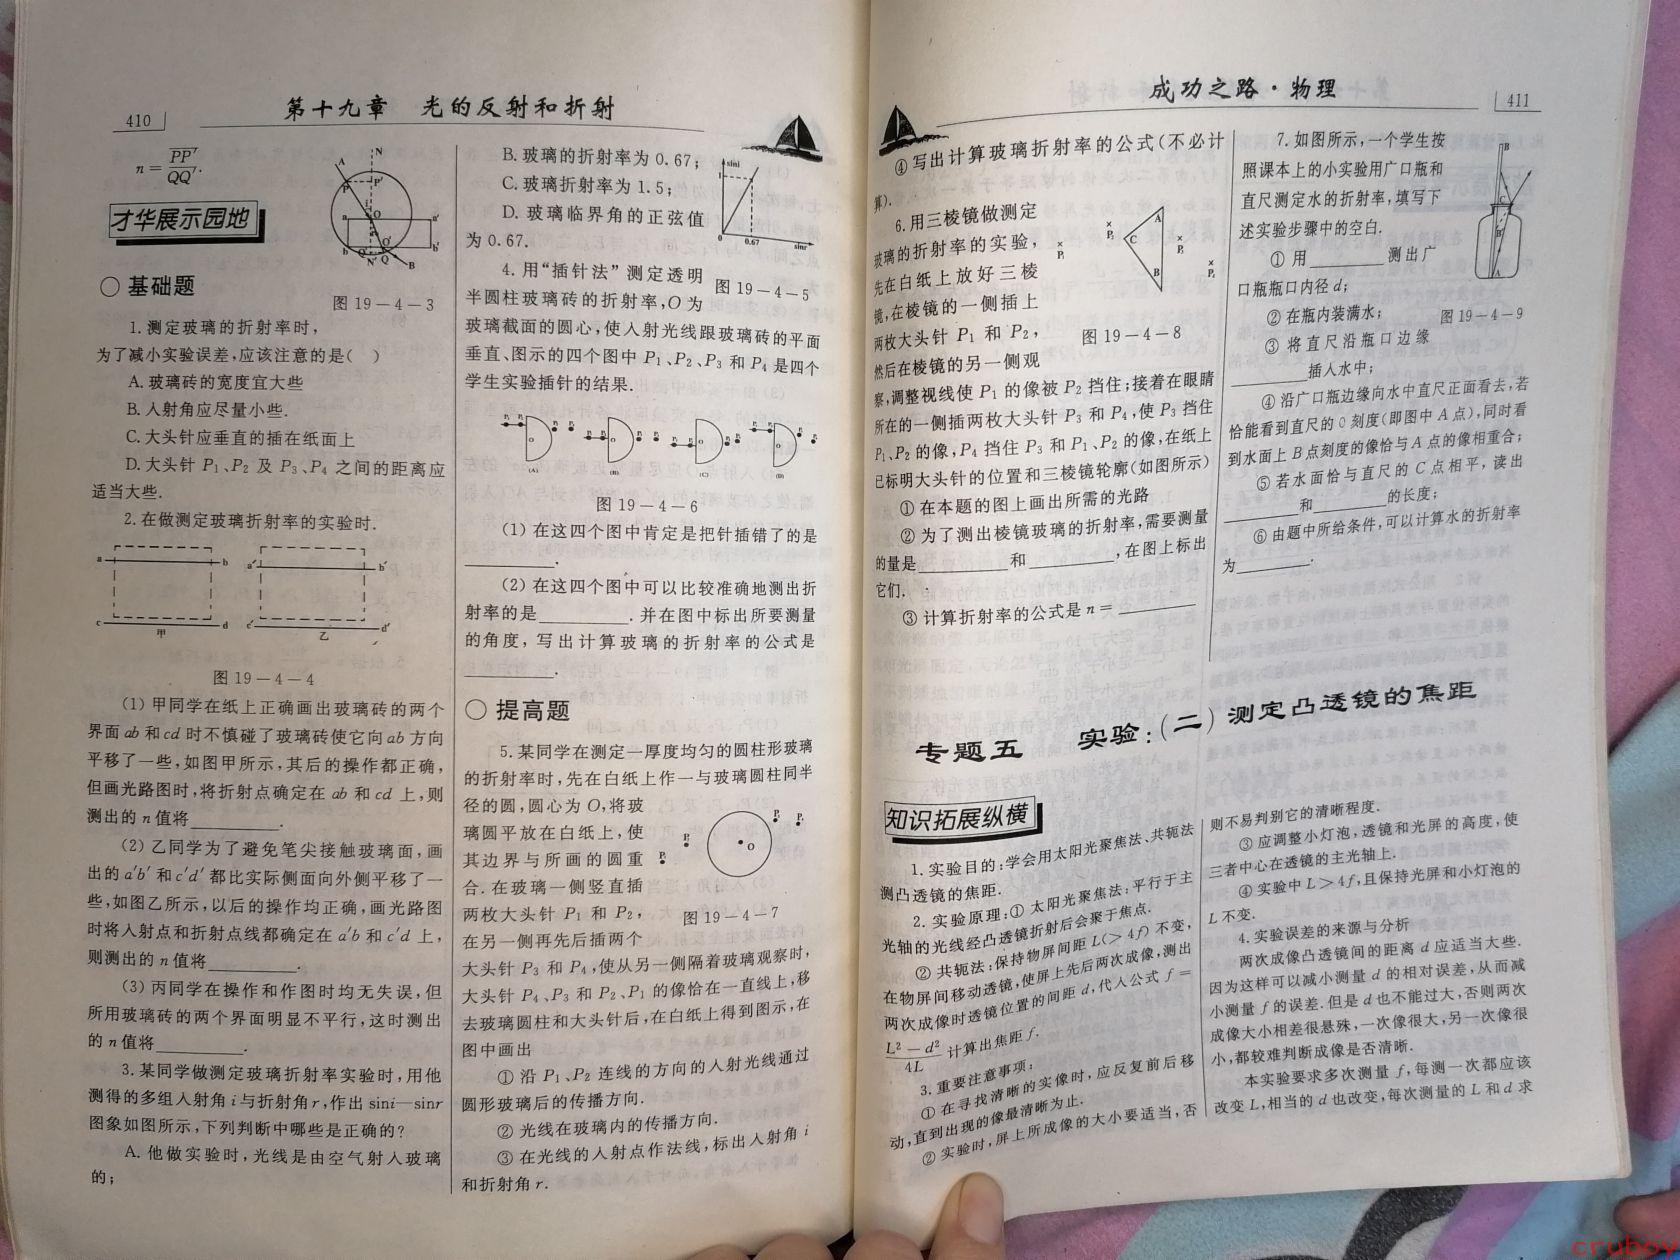 410
第十九章 光的反射和折射
n = PP′/QQ′.
才华展示园地
○ 基础题
图 19-4-3
1. 测定玻璃的折射率时，
为了减小实验误差，应该注意的是( )
A. 玻璃砖的宽度宜大些
B. 入射角应尽量小些.
C. 大头针应垂直的插在纸面上
D. 大头针 P₁、P₂ 及 P₃、P₄ 之间的距离应
适当大些.
2. 在做测定玻璃折射率的实验时.
a b a′ b′
c d c′ d′
甲 乙
图 19-4-4
(1) 甲同学在纸上正确画出玻璃砖的两个
界面 ab 和 cd 时不慎碰了玻璃砖使它向 ab 方向
平移了一些，如图甲所示，其后的操作都正确，
但画光路图时，将折射点确定在 ab 和 cd 上，则
测出的 n 值将________.
(2) 乙同学为了避免笔尖接触玻璃面，画
出的 a′b′ 和 c′d′ 都比实际侧面向外侧平移了一
些，如图乙所示，以后的操作均正确，画光路图
时将入射点和折射点线都确定在 a′b 和 c′d 上，
则测出的 n 值将________.
(3) 丙同学在操作和作图时均无失误，但
所用玻璃砖的两个界面明显不平行，这时测出
的 n 值将________.
3. 某同学做测定玻璃折射率实验时，用他
测得的多组入射角 i 与折射角 r，作出 sini—sinr
图象如图所示，下列判断中哪些是正确的？
A. 他做实验时，光线是由空气射入玻璃
的；
B. 玻璃的折射率为 0.67；
C. 玻璃折射率为 1.5；
D. 玻璃临界角的正弦值
为 0.67.
sini
1
0 0.67 sinr
图 19-4-5
4. 用“插针法”测定透明
半圆柱玻璃砖的折射率，O 为
玻璃截面的圆心，使入射光线跟玻璃砖的平面
垂直、图示的四个图中 P₁、P₂、P₃ 和 P₄ 是四个
学生实验插针的结果.
(A) (B) (C) (D)
图 19-4-6
(1) 在这四个图中肯定是把针插错了的是
________.
(2) 在这四个图中可以比较准确地测出折
射率的是________. 并在图中标出所要测量
的角度，写出计算玻璃的折射率的公式是
________.
○ 提高题
5. 某同学在测定一厚度均匀的圆柱形玻璃
的折射率时，先在白纸上作一与玻璃圆柱同半
径的圆，圆心为 O，将玻
璃圆平放在白纸上，使
其边界与所画的圆重
合. 在玻璃一侧竖直插
两枚大头针 P₁ 和 P₂，
图 19-4-7
在另一侧再先后插两个
大头针 P₃ 和 P₄，使从另一侧隔着玻璃观察时，
大头针 P₄、P₃ 和 P₂、P₁ 的像恰在一直线上，移
去玻璃圆柱和大头针后，在白纸上得到图示，在
图中画出
① 沿 P₁、P₂ 连线的方向的入射光线通过
圆形玻璃后的传播方向.
② 光线在玻璃内的传播方向.
③ 在光线的入射点作法线，标出入射角 i
和折射角 r.
成功之路·物理
411
④ 写出计算玻璃折射率的公式(不必计
算).
6. 用三棱镜做测定
玻璃的折射率的实验，
先在白纸上放好三棱
镜，在棱镜的一侧插上
两枚大头针 P₁ 和 P₂，
图 19-4-8
然后在棱镜的另一侧观
察，调整视线使 P₁ 的像被 P₂ 挡住；接着在眼睛
所在的一侧插两枚大头针 P₃ 和 P₄，使 P₃ 挡住
P₁、P₂ 的像，P₄ 挡住 P₃ 和 P₁、P₂ 的像，在纸上
已标明大头针的位置和三棱镜轮廓(如图所示)
① 在本题的图上画出所需的光路
② 为了测出棱镜玻璃的折射率，需要测量
的量是________和________，在图上标出
它们.
③ 计算折射率的公式是 n=________
7. 如图所示，一个学生按
照课本上的小实验用广口瓶和
直尺测定水的折射率，填写下
述实验步骤中的空白.
① 用________测出广
口瓶瓶口内径 d；
② 在瓶内装满水；
图 19-4-9
③ 将直尺沿瓶口边缘
________插入水中；
④ 沿广口瓶边缘向水中直尺正面看去，若
恰能看到直尺的 0 刻度(即图中 A 点)，同时看
到水面上 B 点刻度的像恰与 A 点的像相重合；
⑤ 若水面恰与直尺的 C 点相平，读出
________和________的长度；
⑥ 由题中所给条件，可以计算水的折射率
为________.
专题五 实验：(二) 测定凸透镜的焦距
知识拓展纵横
1. 实验目的：学会用太阳光聚焦法、共轭法
测凸透镜的焦距.
2. 实验原理：① 太阳光聚焦法：平行于主
光轴的光线经凸透镜折射后会聚于焦点.
② 共轭法：保持物屏间距 L(>4f) 不变，
在物屏间移动透镜，使屏上先后两次成像，测出
两次成像时透镜位置的间距 d，代入公式 f=
(L²-d²)/4L 计算出焦距 f.
3. 重要注意事项：
① 在寻找清晰的实像时，应反复前后移
动，直到出现的像最清晰为止.
② 实验时，屏上所成像的大小要适当，否
则不易判别它的清晰程度.
③ 应调整小灯泡，透镜和光屏的高度，使
三者中心在透镜的主光轴上.
④ 实验中 L>4f，且保持光屏和小灯泡的
L 不变.
4. 实验误差的来源与分析
两次成像凸透镜间的距离 d 应适当大些.
因为这样可以减小测量 d 的相对误差，从而减
小测量 f 的误差. 但是 d 也不能过大，否则两次
成像大小相差很悬殊，一次像很大，另一次像很
小，都较难判断成像是否清晰.
本实验要求多次测量 f，每测一次都应该
改变 L，相当的 d 也改变，每次测量的 L 和 d 求
cruboy